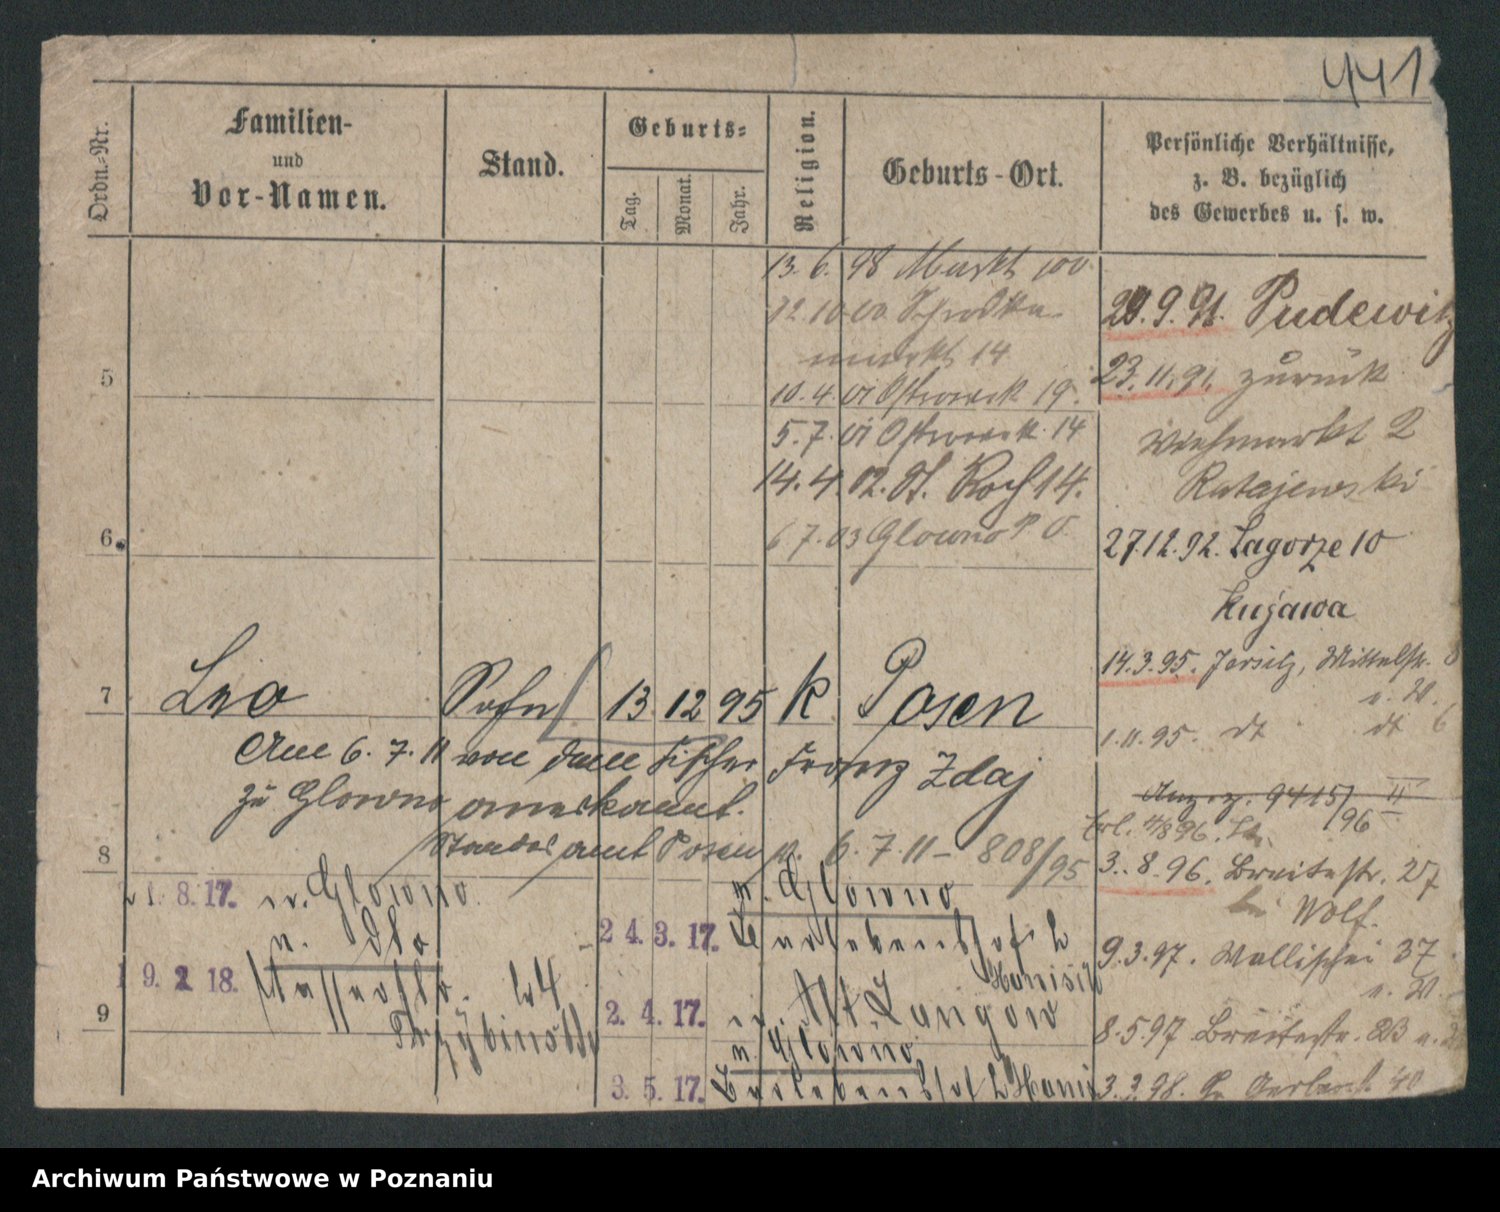 441
Ordn.-Nr.
Familien-
und
Vor-Namen.
Stand.
Geburts-
Tag.
Monat.
Jahr.
Religion.
Geburts-Ort.
Persönliche Verhältnisse,
z. B. bezüglich
des Gewerbes u. s. w.
13. 6. 98 Markt 100
12. 10 00 Schrodka
markt 14
10. 4. 01 Ostrowek 19.
5. 7. 01 Ostrowek 14
14. 4 02. St. Roch 14.
6 7. 03 Glowno P. O.
20. 9. 91. Pudewitz
23. 11. 91. zurück
Viehmarkt 2
Ratajewski
27.12.92. Zagorze 10
Kujawa
14. 3. 95. Jersitz, Mittelstr. 8
u. W.
1. 11. 95. dt dt 6
5
6.
7 Leo Sohn 13 12 95 k Posen
Am 6. 7. 11 von dem Fischer Franz Zdaj
zu Glowno anerkannt.
8 Standesamt Posen 6. 7. 11 – 808/95
Anz. z. 9415/96 II
3. 8. 96. Breitestr. 27
bei Wolf.
9. 3. 97. Wallischei 37
u. W.
8. 5 97 Breitestr. 23
3. 3. 98. Gr. Gerberstr. 40
21. 8. 17. n. Glowno
n. dto
1 9. 2 18.
9
24. 3. 17. n. Glowno
2. 4. 17. n. Glowno
3. 5. 17.
Archiwum Państwowe w Poznaniu